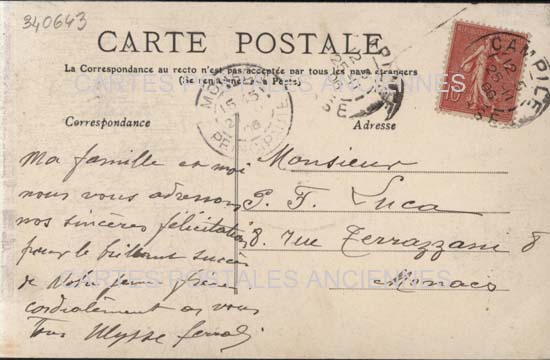 340643
CARTE POSTALE
La Correspondance au recto n'est pas acceptée par tous les pays étrangers
(Se renseigner à la Poste)
CARTES POSTALES ANCIENNES
Correspondance
Adresse
CAMPILE
10
Ma famille et moi
nous vous adressons
nos sincères félicitations
pour le brillant succès
de votre
cordialement à vous
Tous Ulysse
Monsieur
P. F. Luca
8, Rue Terrazzani 8
Monaco
CARTES POSTALES ANCIENNES